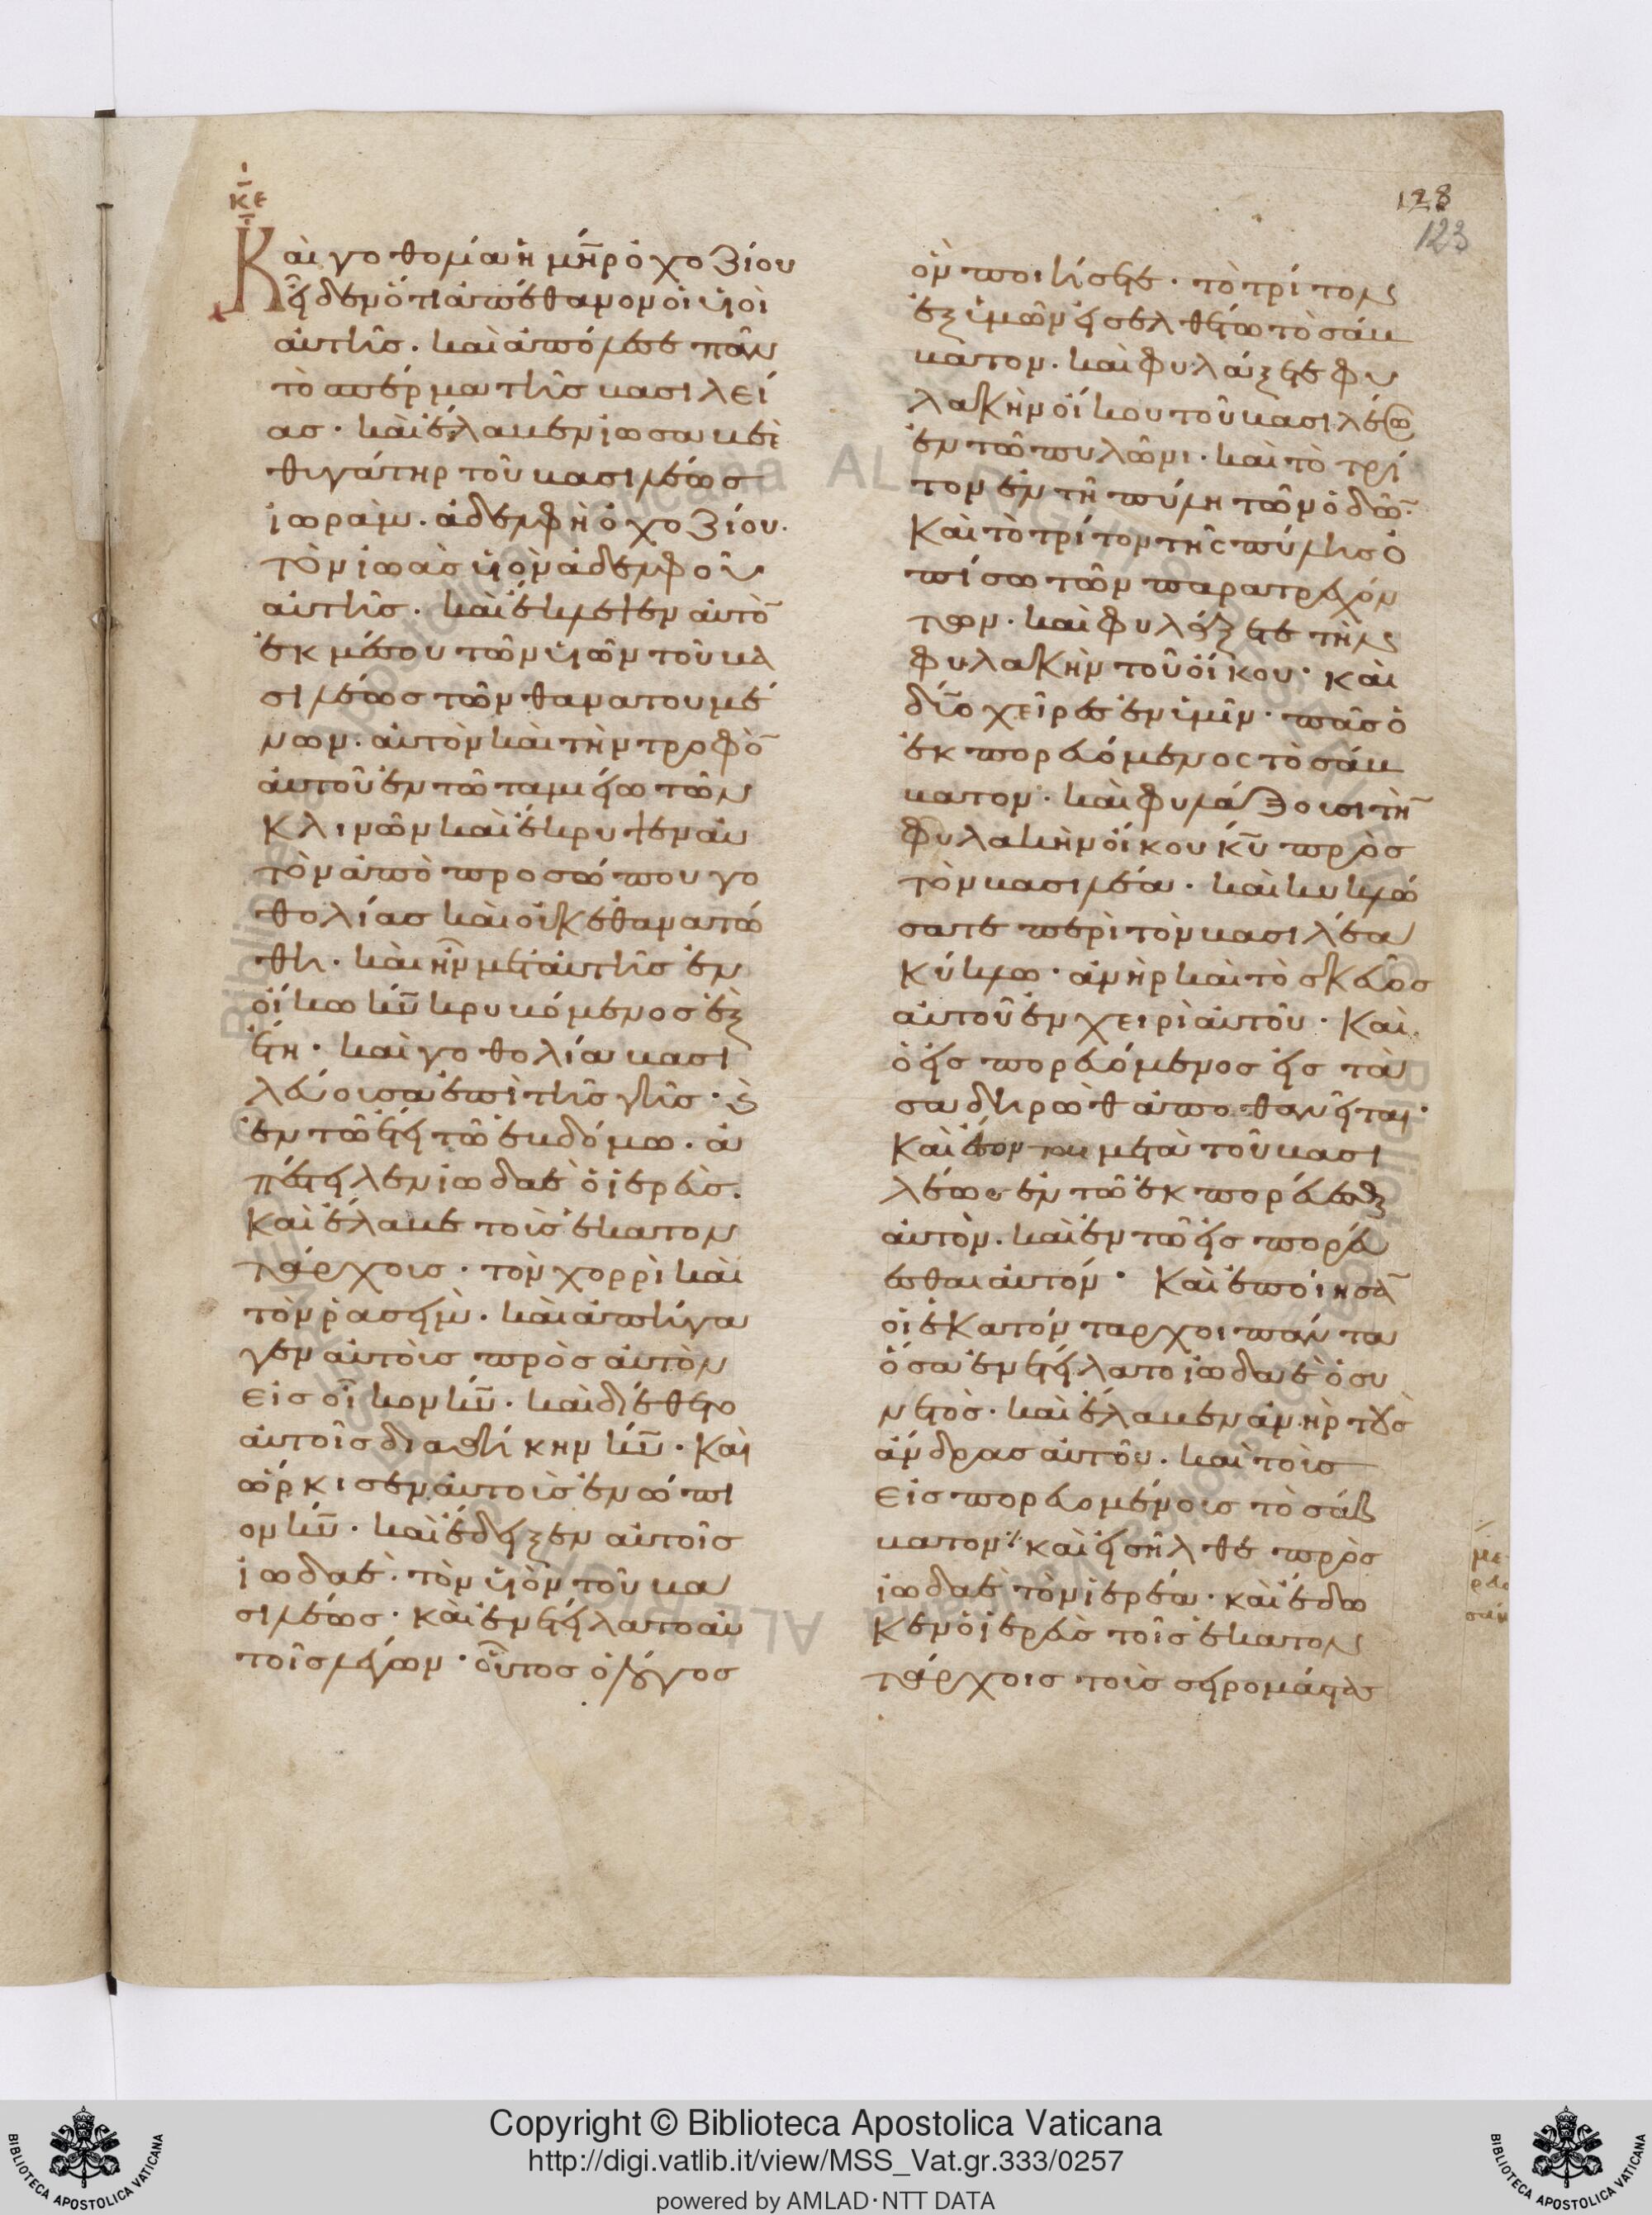 κε
Καὶ γοθολία ἡ μη̅ρ ὀχοζίου
εἶδεν ὅτι ἀπέθανον οἱ υἱοὶ
αὐτῆσ. καὶ ἀπώλεσε πᾶν
τὸ σπέρμα τῆσ βασιλεί
ασ. καὶ ἔλαβεν ἰωσαβεὲ
θυγάτηρ τοῦ βασιλέωσ
ἰωράμ. ἀδελφὴ ὀχοζίου.
τὸν ἰωὰσ υἱὸν ἀδελφοῦ
αὐτῆσ. καὶ ἔκλεψεν αὐτὸ̅
ἐκ μέσου τῶν υἱῶν τοῦ βα
σιλέωσ τῶν θανατουμέ
νων. αὐτὸν καὶ τὴν τροφὸ̅
αὐτοῦ ἐν τῶ ταμιείω τῶν
κλινῶν καὶ ἔκρυψεν αὐ
τὸν ἀπὸ προσώπου γο
θολίασ καὶ οὐκ ἐθανατώ
θη. καὶ ἦν μετ αὐτῆσ ἐν
οἴκω κυ̅ κρυβόμενοσ ἓξ
ἔτη. καὶ γοθολία βασι
λεύουσα ἐπὶ τῆσ γῆσ. ϗ
ἐν τῶ ἔτει τῶ ἑβδόμω. ἀ
πέστειλεν ἰωδαὲ ὁ ἱερεὺσ.
καὶ ἔλαβε τοὺσ ἑκατον
τάρχουσ. τὸν χορρὶ καὶ
τὸν ρασείμ. καὶ ἀπήγα
γεν αὐτοὺσ πρὸσ αὐτὸν
εἰσ οἶκον κυ̅. καὶ διέθετο
αὐτοῖσ διαθήκην κυ̅. καὶ
ὥρκισεν αὐτοὺσ ἐνώπι
ον κυ̅. καὶ ἔδειξεν αὐτοῖσ
ἰωδαὲ. τὸν υἱὸν τοῦ βα
σιλέωσ. καὶ ἐνετείλατο αὐ
τοῖσ λέγων. οὗτοσ ὁ λόγοσ
ὃν ποιήσετε. τὸ τρίτον
ἐξ ὑμῶν εἰσελθέτω τὸ σάβ
βατον. καὶ φυλάξετε φυ
λακὴν οἴκου τοῦ βασιλέω
ἐν τῶ πυλῶνι. καὶ τὸ τρί
τον ἐν τῆ πύλη τῶν ὁδῶ̅.
Καὶ τὸ τρίτον τῆς πύλησ ὀ
πίσω τῶν παρατρεχόν
των. καὶ φυλάξετε τὴν
φυλακὴν τοῦ οἴκου. καὶ
δύο χεῖρεσ ἐν ὑμῖν. πᾶσ ὁ
ἐκπορευόμενος τὸ σάβ
βατον. καὶ φυλάξουσι τὴ̅
φυλακὴν οἴκου κυ̅ πρὸσ
τὸν βασιλέα. καὶ κυκλώ
σατε περὶ τὸν βασιλέα
κύκλω. ἀνὴρ καὶ τὸ σκεῦοσ
αὐτοῦ ἐν χειρὶ αὐτοῦ. Καὶ
ὁ εἰσπορευόμενοσ εἰσ τὰ
σαδηρὼθ ἀποθανεῖται.
Καὶ ἔσονται μετὰ τοῦ βασι
λέωσ ἐν τῶ ἐκπορεύεσθαι
αὐτὸν. καὶ ἐν τῶ εἰσπορεύ
εσθαι αὐτόν. Καὶ ἐποίησα̅
οἱ ἑκατόνταρχοι πάντα
ὅσα ἐνετείλατο ἰωδαὲ ὁ συ
νετὸσ. καὶ ἔλαβεν ἀνὴρ τοὺσ
ἄνδρασ αὐτοῦ. καὶ τοὺσ
εἰσπορευομένουσ τὸ σάβ
βατον. καὶ εἰσῆλθε πρὸσ
ἰωδαὲ τὸν ἱερέα. καὶ ἔδω
κεν ὁ ἱερεὺσ τοῖσ ἑκατον
τάρχοισ τοὺσ σειρομάστασ
128
123
Copyright © Biblioteca Apostolica Vaticana
http://digi.vatlib.it/view/MSS_Vat.gr.333/0257
powered by AMLAD·NTT DATA
BIBLIOTECA APOSTOLICA VATICANA
BIBLIOTECA APOSTOLICA VATICANA